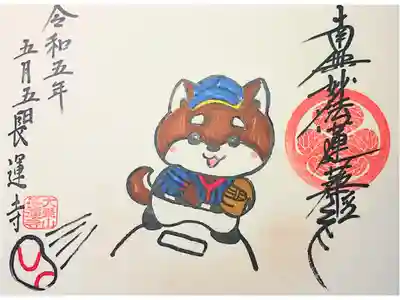 南無妙法蓮華経
令和五年
五月五日
長運寺